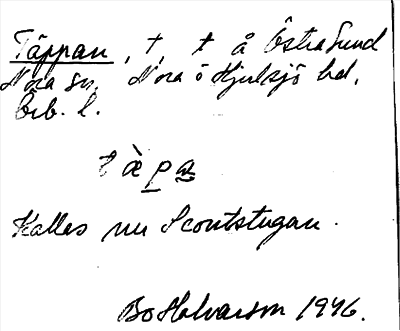 Täppan, t, t å Östra Sund
Nora sn. Nora o Hjulsjö hd.
Örb. l.
tæ̀pa
Kallas nu Scoutstugan.
Bo Halvarson 1946.